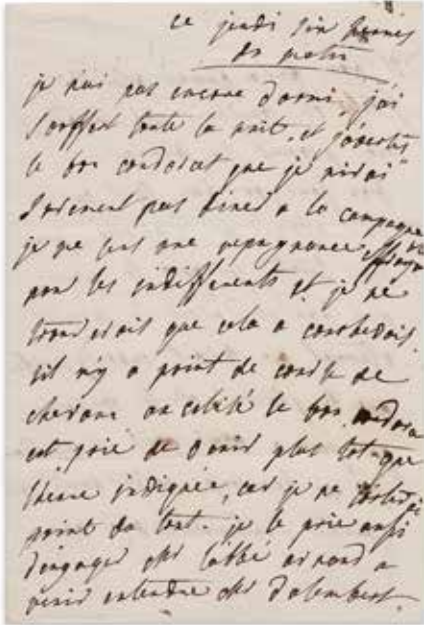 ce jeudi six heures
du matin
je nai pas encore dormi, j'ai
souffert toute la nuit, et j'avertis
le bon condorcet que je nirai
surement pas diner a la campagne
je me sens une repugnance
pour les indifferents et je ne
trouverais que cela a
sil n'y a point de
le bon
est prié de venir plus tot que
lheure indiquée, car je ne
point du tout. je le prie aussi
dengager mr labbé arnaud a
venir entendre mr dalembert.